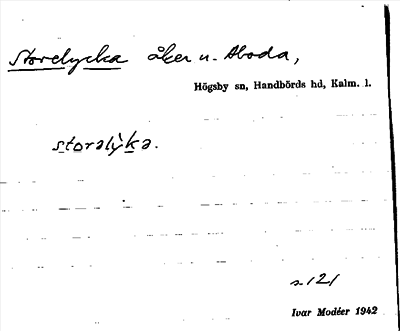 Storelycka åker u. Aboda,
Högsby sn, Handbörds hd, Kalm. l.
storalỳka.
s. 121
Ivar Modéer 1942